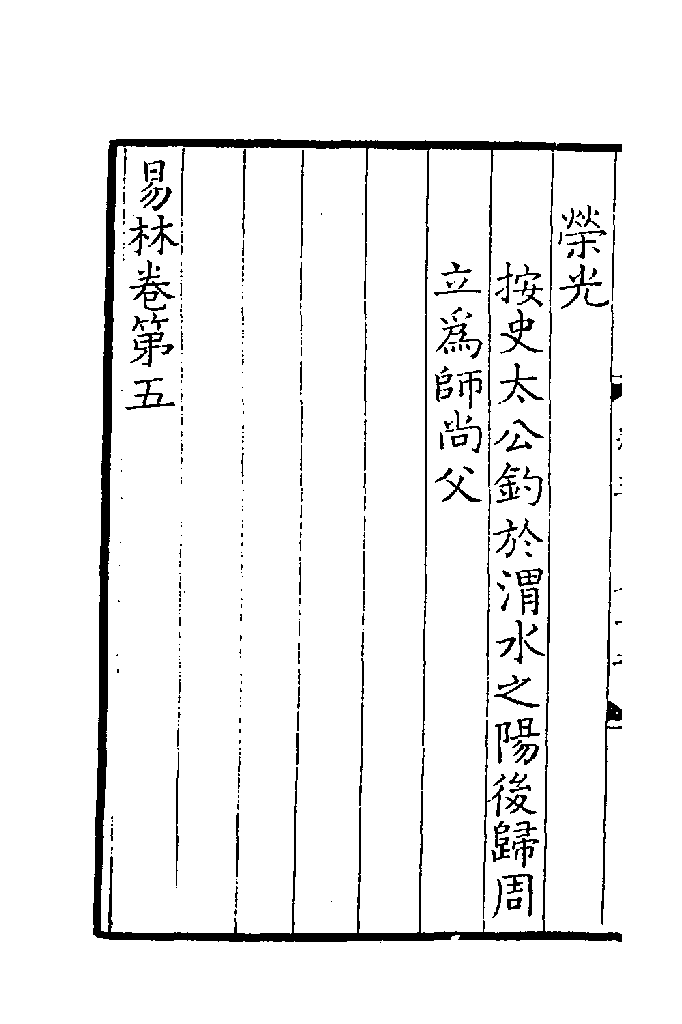 榮光
按史太公釣於渭水之陽後歸周
立爲師尚父
易林卷第五